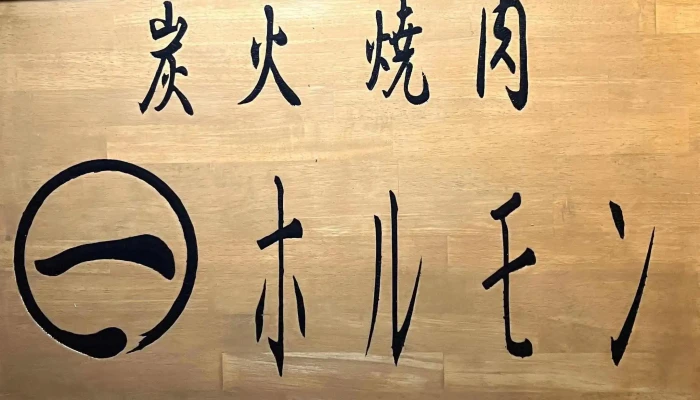 炭火焼肉
㊀ホルモン